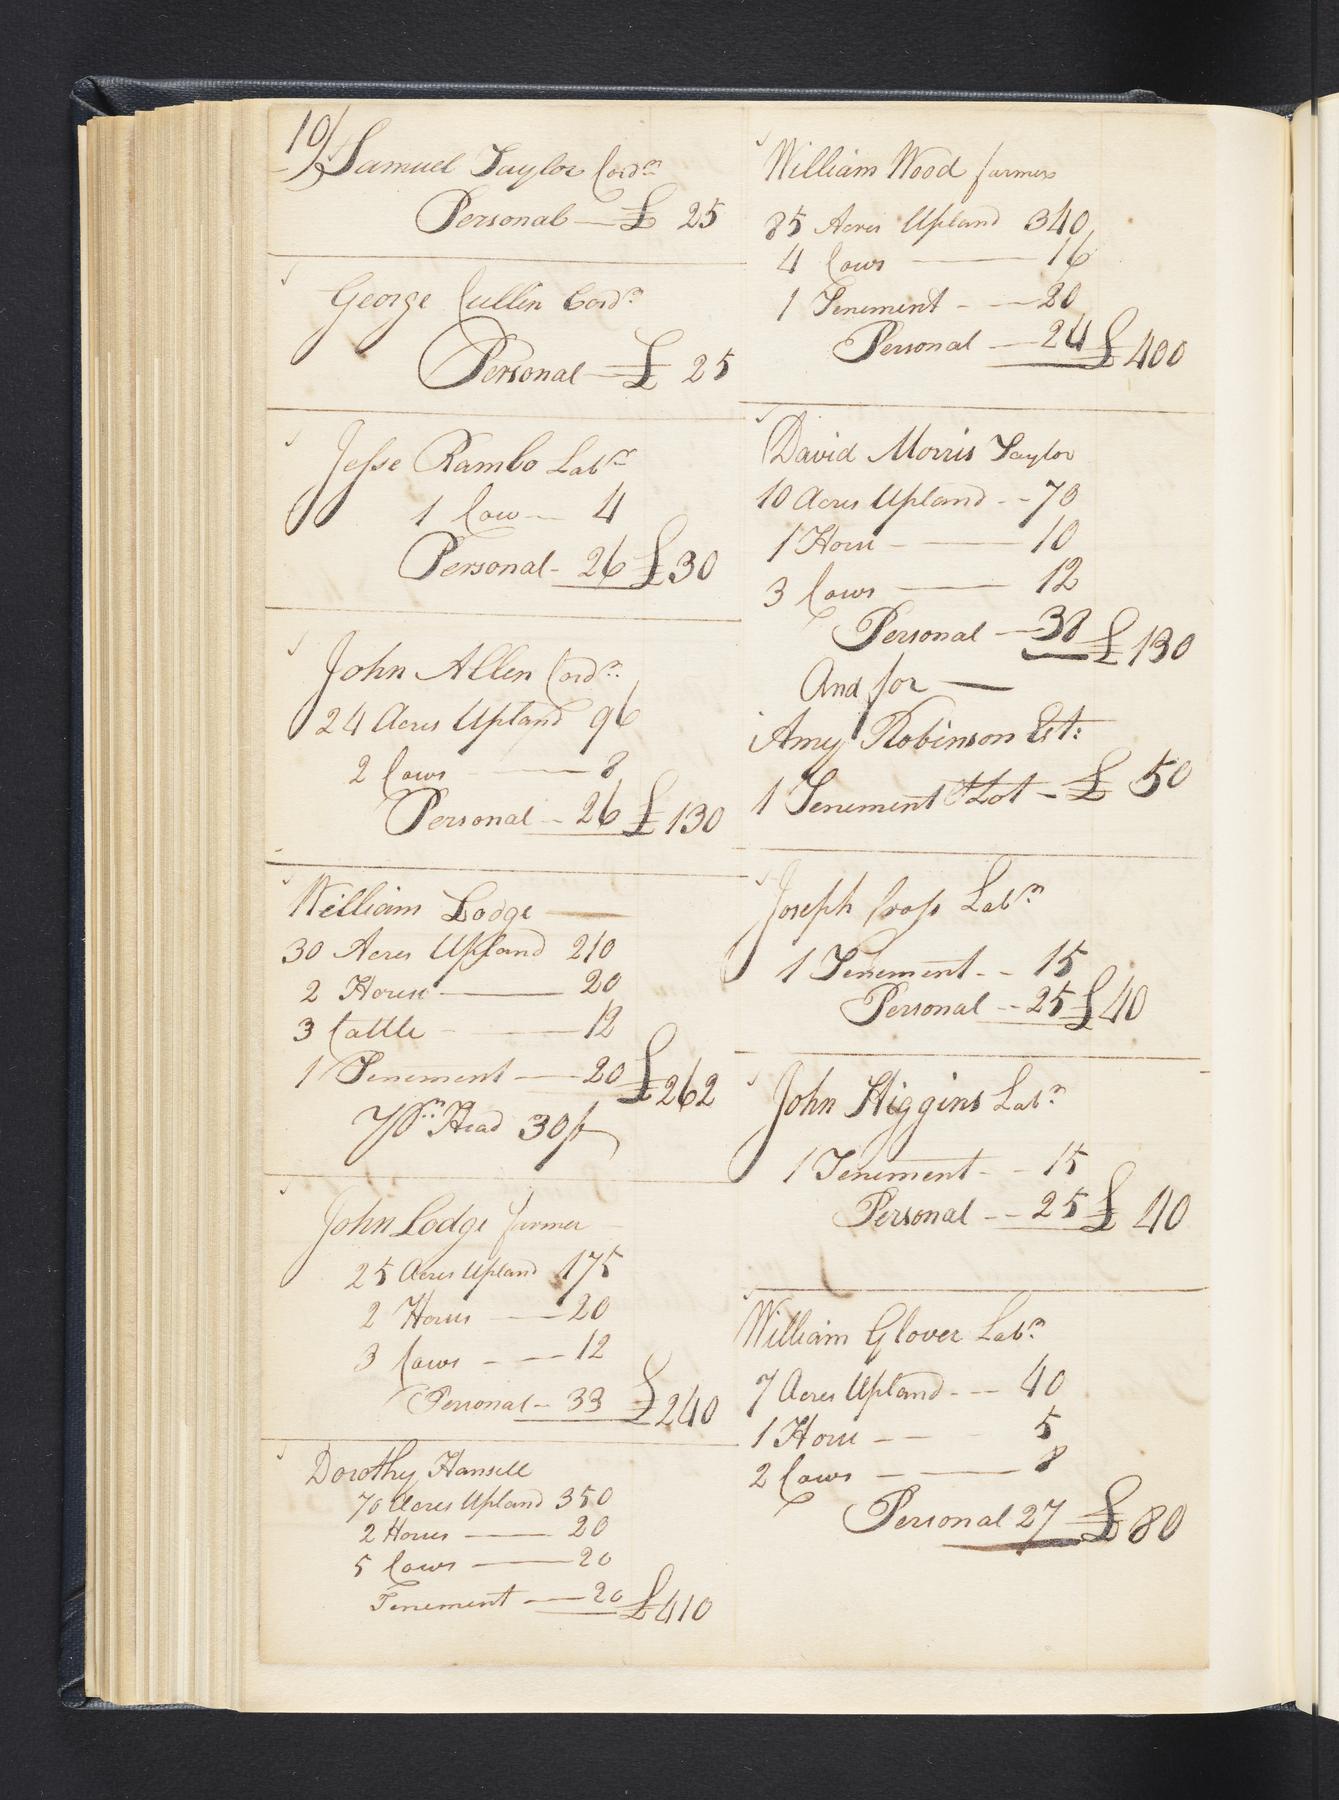 10/
Samuel Taylor Cordr
Personal — £ 25
George Cullin Cordr
Personal — £ 25
Jesse Rambo Labr
1 Cow — 4
Personal - 26 £30
John Allen Cordr
24 Acres Upland 96
2 Cows — 8
Personal - 26 £130
William Lodge —
30 Acres Upland 210
2 Horses — 20
3 Cattle — 12
1 Tenement — 20 £262
Head 30/
John Lodge farmer
25 Acres Upland 175
2 Horses — 20
3 Cows — 12
Personal - 33 £240
Dorothy Hansell
70 Acres Upland 350
2 Horses — 20
5 Cows — 20
Tenement — 20 £410
William Wood farmer
85 Acres Upland 340
4 Cows — 16
1 Tenement - — 20
Personal — 24 £400
David Morris Taylor
10 Acres Upland - - 70
1 Horse — 10
3 Cows — 12
Personal — 38 £130
And for —
Amy Robinson Est:
1 Tenement & Lot - £ 50
Joseph Cross Labr
1 Tenement - - 15
Personal - - 25 £40
John Higgins Labr
1 Tenement - - 15
Personal - - 25 £ 40
William Glover Labr
7 Acres Upland - — 40
1 Horse - — 5
2 Cows — 8
Personal 27 £80